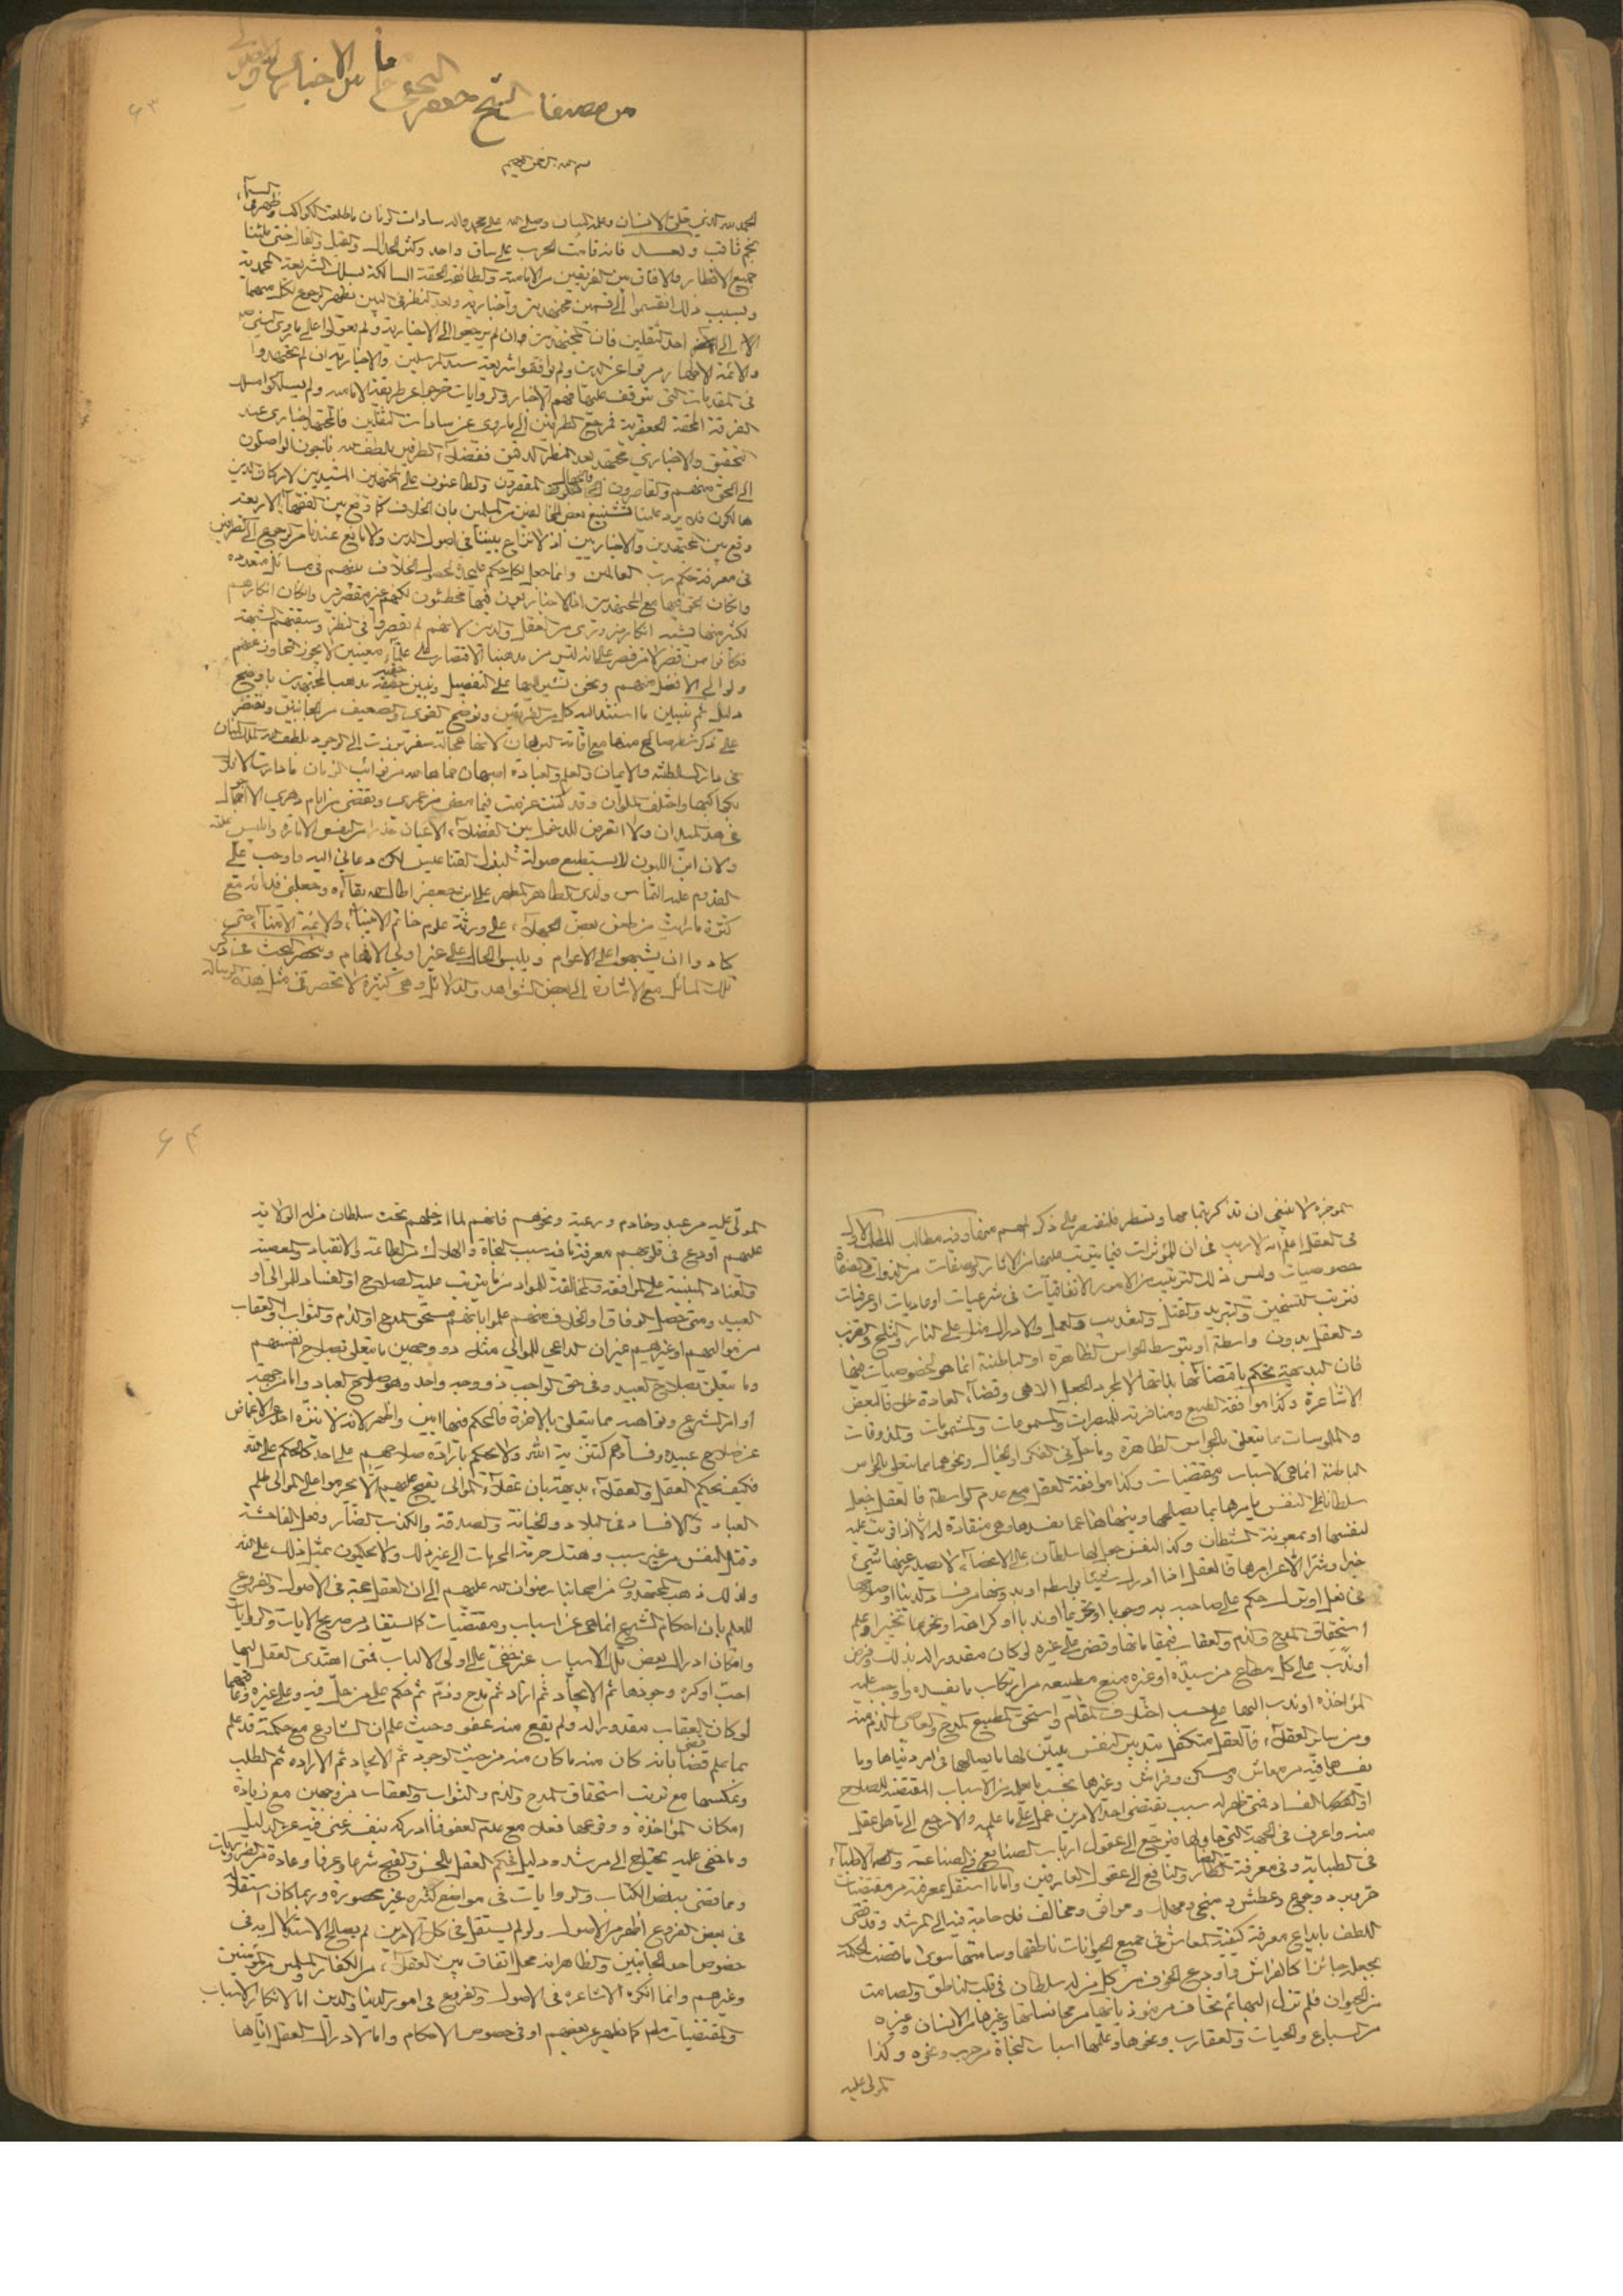 من مصنفات الشيخ جعفر النجفي
٦٣
بسم الله الرحمن الرحيم
الحمد لله الذي خلق الانسان وعلمه البيان وصلى الله على محمد واله سادات الزمان ما طلعت الكواكب وظهر في السماء
نجم ثاقب وبعد فانه قامت الحرب على ساق واحد وكثر الجدال والقيل والقال حتى ملئنا
جميع الاقطار والافاق بين الفريقين من الامامية والطائفة المحقة السالكة مسلك الشريعة المحمدية
وبسبب ذلك انقسموا الى قسمين مجتهدين واخبارية وبعد النظر في البين يظهر رجوع كل منهما
الى احد الثقلين فان المجتهدين وان لم يرجعوا الى الاخبارية ولم يعولوا على ما روي عن النبي
والائمة الاطهار مرقوا عن الدين ولم يوافقوا شريعة سيد المرسلين والاخبارية ان لم يجتهدوا
في المقدمات التي يتوقف عليها فهم الاخبار والروايات خرجوا عن طريقة الامامية ولم يسلكوا مسلك
الفرقة المحقة الجعفرية فمرجع الطرفين الى ما روي عن سادات الثقلين فالمجتهد اخباري عند
التحقيق والاخباري مجتهد بعد النظر الدقيق ففضلاء الطرفين بلطف الله ناجون والواصلون
الى الحق منهم والقاصرون والجهال المقصرون والطاعنون على المجتهدين المشيدين لاركان الدين
هالكون فلا يرد علينا تشنيع بعض المخالفين من المسلمين بان الخلاف كما وقع بين الفقهاء الاربعة
وقع بين المجتهدين والاخباريين اذ لا نزاع بيننا في اصول الدين ولا مانع عندنا من الرجوع الى الطرفين
في معرفة حكم رب العالمين وانما جعل لكل حكم عليحدة لحصول الخلاف بينهم في مسائل متعددة
وان كان الحق فيها مع المجتهدين اذ الاخباريون فيها مخطئون لكنهم غير مقصرين وان كان انكارهم
لكثير منها يشبه انكار ضروري من العقل والدين لانهم لم يقصروا في النظر وسبقتهم الشبهة
ولو الى الافضل منهم ونحن نشير اليها على التفصيل ونبين حقيقة مذهب المجتهدين باوضح
دليل ثم نبين ما استند اليه كل من الفريقين ونوضح القوي والضعيف من الجانبين ونقتصر
على ذكر شطر صالح منها مع اقامة البرهان لانها عجالة سفر برزت الى الوجود بلطف الملك المنان
في دار السلطنة والايمان والعلم والعبادة اصبهان حماها الله من نوائب الزمان ما دارت الافلاك
بكواكبها واختلف الملوان وقد كنت عزمت فيما مضى من عمري وتقضى من ايام دهري الا اجول
في هذا الميدان ولا اتعرض للدخول بين الفضلاء الاعيان حذرا من النفس الامارة وابليس
ولان ابن اللبون لا يستطيع صولة البزل القناعيس لكن دعاني اليه واوجب علي
القدوم عليه التماس ولدي الطاهر المطهر علي ابن جعفر اطال الله بقاءه وجعلني فداءه مع
كثرة ما رايت من طعن بعض الجهلاء على ورثة علوم خاتم الانبياء والائمة الامناء حتى
كادوا ان يشبهوا على الاعوام ويلبس الحال على غير اولي الافهام وينحصر البحث عن ذكر
تلك المسائل مع الاشارة الى بعض الشواهد والدلائل وهي كثيرة لا تحصر في مثل هذه الرسالة
الموجزة لا ينبغي ان تذكر بتمامها وتسطر فلنقتصر على ذكر المهم منها وفيه مطالب المطلب الاول
في العقل اعلم انه لا ريب في ان المؤثرات فيما يترتب عليها من الاثار والصفات من الذوات والصفات
خصوصيات وليس ذلك الترتيب من الامور الاتفاقيات في شرعيات او عاديات او عرفيات
فترتب التسخين والتبريد والقتل والتعذيب والعمل والادراك مثلا على النار والثلج والضرب
والعقل بدون واسطة او بتوسط الحواس الظاهرة او الباطنة انما هو لخصوصيات فيها
فان البديهة تحكم باقتضائها بذاتها لا لمجرد الجعل الالهي وقضاء العادة خلافا لبعض
الاشاعرة وكذا موافقة الطبع ومنافرته للمبصرات والمسموعات والمشمومات والمذوقات
والملموسات مما يتعلق بالحواس الظاهرة وما حل في الفكر او الخيال ونحوهما مما يتعلق بالحواس
الباطنة انما هي لاسباب ومقتضيات وكذا موافقة العقل مع عدم الواسطة فالعقل جعل
سلطانا على النفس يامرها بما يصلحها وينهاها عما يفسدها وهي منقادة له الا اذا قويت عليه
لنفسها او بمعونة الشيطان وكذا النفس جعل لها سلطان على الاعضاء لا يصدر عنها شيء
خيرا وشرا الا عن امرها فالعقل اذا ادرك شيئا بواسطة او بدونها من فساد الدنيا او صلاحها
في فعل او ترك حكم على صاحبه به وجوبا او تحريما او ندبا او كراهة او نحوها تخييرا وعلم
استحقاق المدح والذم والعقاب
او ندب على كل مطاع من سيد او غيره منع مطيعه من ارتكاب ما يفسده واوجب عليه
المؤاخذة او ندب اليها على حسب اختلاف المقام واستحق المطيع المدح والعاصي الذم منه
ومن سائر العقلاء فالعقل متكفل بتدبير النفس يبين لها ما يصلحها في امر دنياها وما
يفسدها فيه من معاش ومسكن وفراش وغيرها بحسب ما علمه من الاسباب المقتضية للصلاح
او الفساد فمتى ظهر له سبب يقتضي احد الامرين عمل على ما علمه والا رجع الى ما هو اعقل
منه واعرف في الجهة التي حاولها فيرجع الى عقول ارباب الصنايع في الصناعة والاطباء
في الطبابة وفي معرفة المضار والمنافع الى عقول العارفين واما ما استقل بمعرفته من مقتضيات
حر وبرد وجوع وعطش ومنجي ومهلك وموافق ومخالف فلا حاجة فيه الى المرشد وقد قضى
اللطف بايداع معرفة كيفية المعاش في جميع الحيوانات ناطقها وصامتها سوى ما قضت الحكمة
بجعله جائزا كالفراش واودع الخوف من كل من له سلطان في قلب الناطق والصامت
من الحيوان فلم تزل البهائم تخاف من موذياتها من مجانساتها وغيرها من الانسان وغيره
من السباع والحيات والعقارب ونحوها وعلمها اسباب النجاة من حرب ونحوه وكذا
المولى عليه
٦٤
المولى عليه من عبد وخادم ورعية ونحوهم فانهم لما ادخلهم تحت سلطان من له الولاية
عليهم اودع في قلوبهم معرفة ما فيه سبب النجاة والهلاك من الطاعة والانقياد والمعصية
والعناد المبنية على الموافقة والمخالفة للمراد مما يترتب عليه الصلاح او الفساد للموالي او
العبيد ومتى حصل الوفاق او الخلاف منهم علموا بانهم مستحقو المدح او الذم والثواب والعقاب
من مواليهم او غيرهم غير ان الداعي للموالي مثل ذو وجهين ما يتعلق بصلاح انفسهم
وما يتعلق بصلاح العبيد وفي حق الواجب ذو وجه واحد وهو صلاح العباد واما من جهة
اوامر الشرع ونواهيه مما يتعلق بالاخرة فالحكم فيها ابين واظهر لانه لا ينزه احد عن الاغماض
عن صلاح عبيده وفسادهم كتنزيه الله ولا يحكم بارادة صلاحهم على احد كالحكم على الله
فكيف يحكم العقل والعقلاء بديهة بان عقلاء الموالي يقبح عليهم الا يحرموا على الموالي ظلم
العباد والافساد في البلاد والخيانة والصدقة والكذب الضار وفعل الفاحشة
وقتل النفس من غير سبب وهتك حرمة المحرمات الى غير ذلك ولا يحكمون بمثل ذلك على الله
ولذلك ذهب المجتهدون من اصحابنا رضوان الله عليهم الى ان العقل حجة في الاصول والفروع
للعلم بان احكام الشرع انما هي عن اسباب ومقتضيات كما يستفاد من صريح الايات والروايات
وامكان ادراك بعض تلك الاسباب غير خفي على اولي الالباب فمتى اهتدى العقل اليها
احب او كره وجودها ثم الايجاد ثم اراد ثم مدح وذم ثم حكم على من حل فيه وعلى غيره
لو كان العقاب مقدورا له ولم يقع منه عفو وحيث علم ان الشارع مع حكمته قد علم
بما علم قضى بانه كان منه ما كان منه من حيث الوجود ثم الايجاد ثم الارادة ثم الطلب
وبعكسها مع ترتب استحقاق المدح والذم والثواب والعقاب من وجهين مع زيادة
امكان المؤاخذة ووقوعها فعلا مع عدم العفو فما ادركه بنفسه غني فيه عن الدليل
وما خفي عليه يحتاج الى مرشد ودليل فحكم العقل بالحسن والقبح شرعا وعرفا وعادة من الضروريات
ومما قضى به نص الكتاب والروايات في مواضع كثيرة غير محصورة وربما كان استقلاله
في بعض الفروع اظهر من الاصول ولو لم يستقل في كل الامرين لم يصلح الاستدلال به في
خصوص احد الجانبين والظاهر انه محل اتفاق بين العقلاء من الكفار والمسلمين والمؤمنين
وغيرهم وانما انكره الاشاعرة في الاصول والفروع في امور الدنيا والدين اما لانكار الاسباب
والمقتضيات منهم كما يظهر عن بعضهم او في خصوص الاحكام واما لادراك العقل اياها